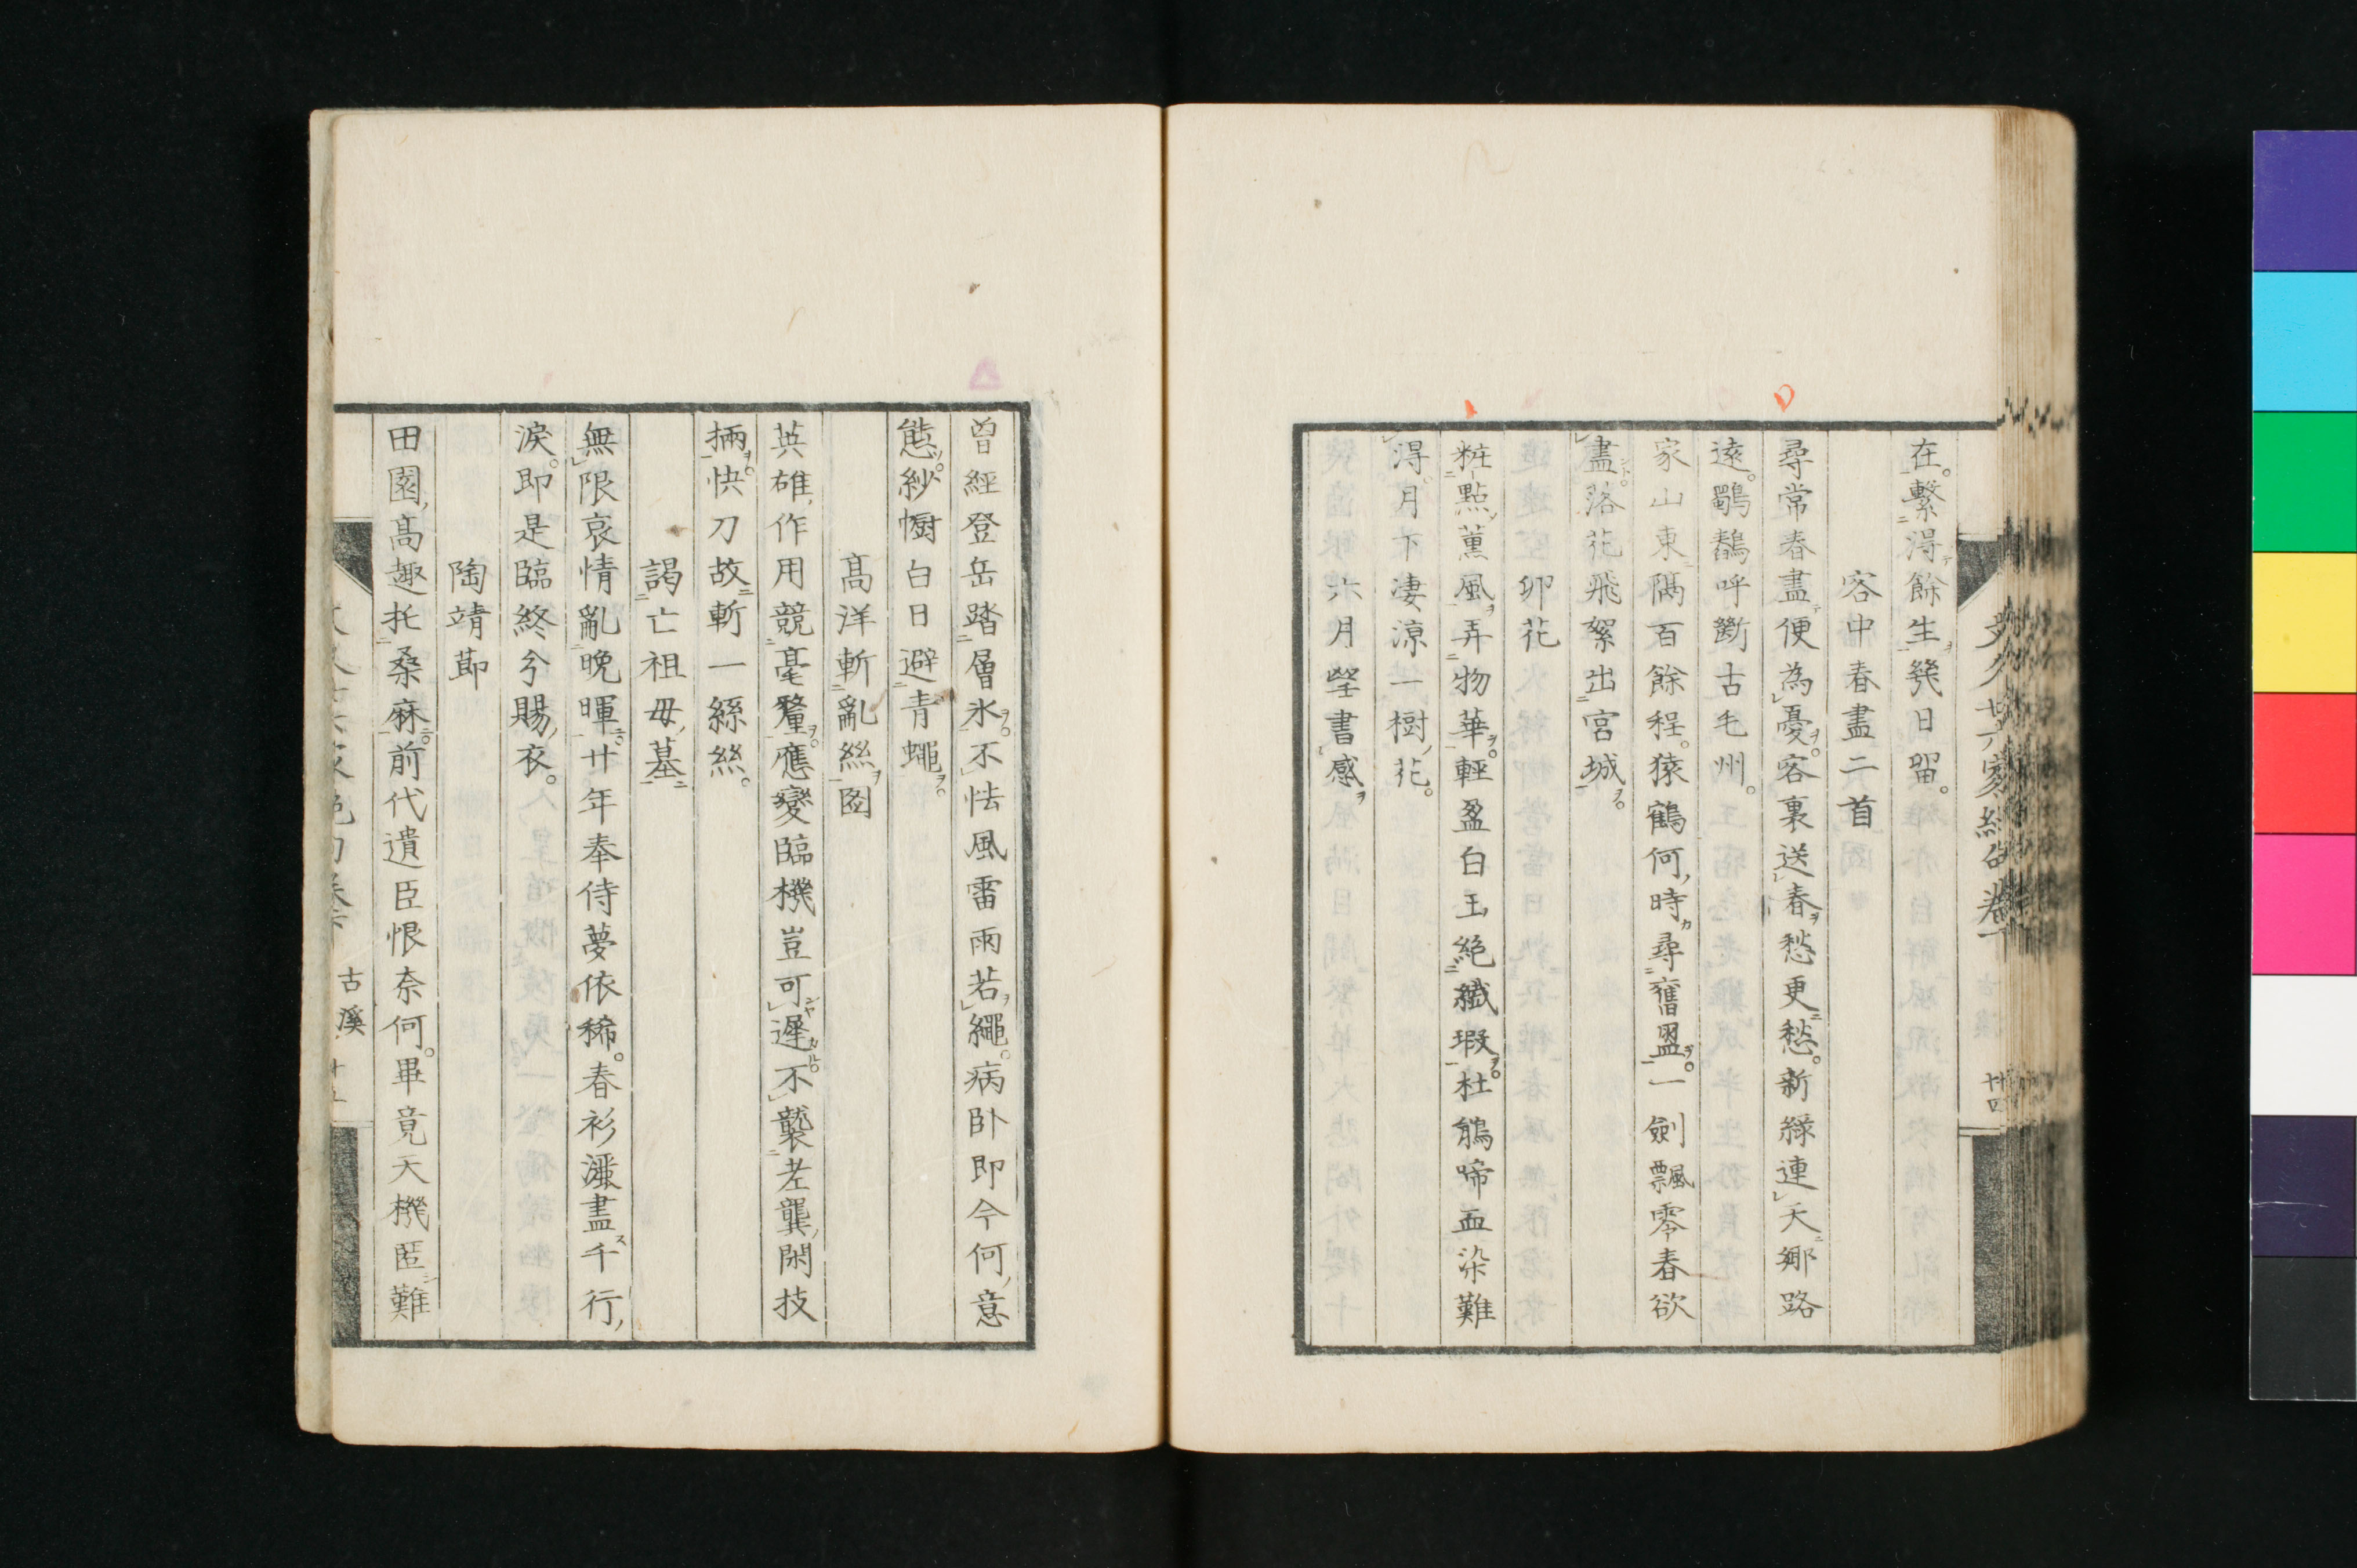 在繋得餘生幾日留。
客中春盡二首
尋常春盡便為憂。客裏送春愁更愁。新綠連天鄉路
遠。鷓鴣呼斷古毛州。
家山東隔百餘程。猿鶴何時尋舊盟。一劍飄零春欲
盡。落花飛絮出宮城。
卯花
粧點薰風弄物華。輕盈白玉絕纖瑕。杜鵑啼血染難
得。月下淒凉一樹花。
六月塋書感
曾經登岳踏層氷。不怯風雷雨若繩。病臥即今何意
態。紗幮白日避青蠅。
髙洋斬亂絲圖
英雄作用競毫釐。應變臨機豈可遲。不襲老龔閑技
倆。快刀故斬一絲絲。
謁亡祖母墓
無限哀情亂晚暉。廿年奉侍夢依稀。春衫濕盡千行
淚。即是臨終分賜衣。
陶靖節
田園髙趣托桑麻。前代遺臣恨奈何。畢竟天機匿難
古溪